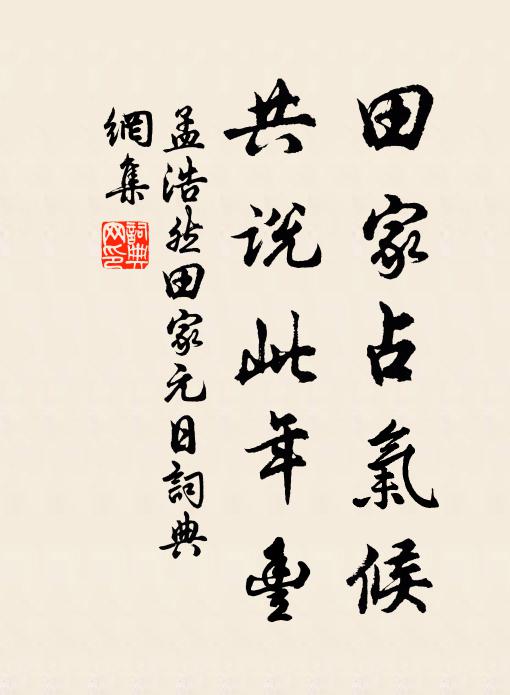 田家占氣候
共説此年豐
孟浩然田家元日詞典
網集
詞典
网印